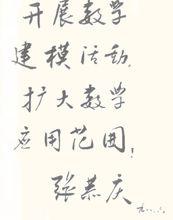 开展数学
建模活动，
扩大数学
应用范围！
张恭庆